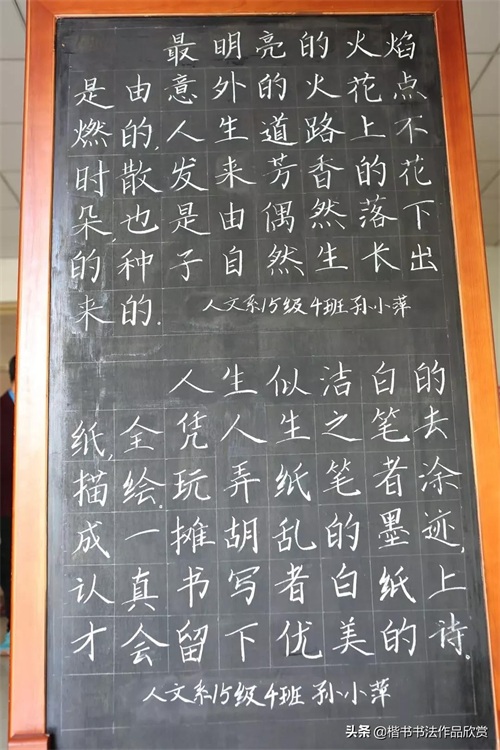 最明亮的火焰
是由意外的火花点
燃的.人生道路上不
时散发来芳香的花
朵,也是由偶然落下
的种子自然生长出
来的.
人文系15级4班孙小萍
人生似洁白的
纸,全凭人生之笔去
描绘.玩弄纸笔者涂
成一摊胡乱的墨迹,
认真书写者白纸上
才会留下优美的诗.
人文系15级4班孙小萍
头条@楷书书法作品欣赏